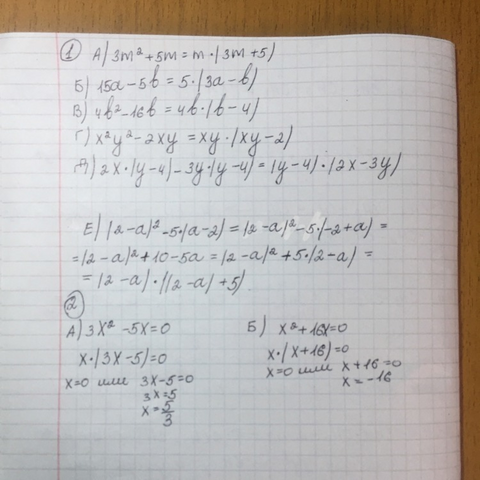 1 А) 3m² + 5m = m · (3m + 5)
Б) 15a - 5b = 5 · (3a - b)
В) 4b² - 16b = 4b · (b - 4)
Г) x²y² - 2xy = xy · (xy - 2)
Д) 2x · (y - 4) - 3y · (y - 4) = (y - 4) · (2x - 3y)
Е) (2 - a)² - 5 · (a - 2) = (2 - a)² - 5 · (-2 + a) =
= (2 - a)² + 10 - 5a = (2 - a)² + 5 · (2 - a) =
= (2 - a) · ((2 - a) + 5)
2
А) 3x² - 5x = 0
x · (3x - 5) = 0
x = 0 или 3x - 5 = 0
3x = 5
x = 5/3
Б) x² + 16x = 0
x · (x + 16) = 0
x = 0 или x + 16 = 0
x = -16